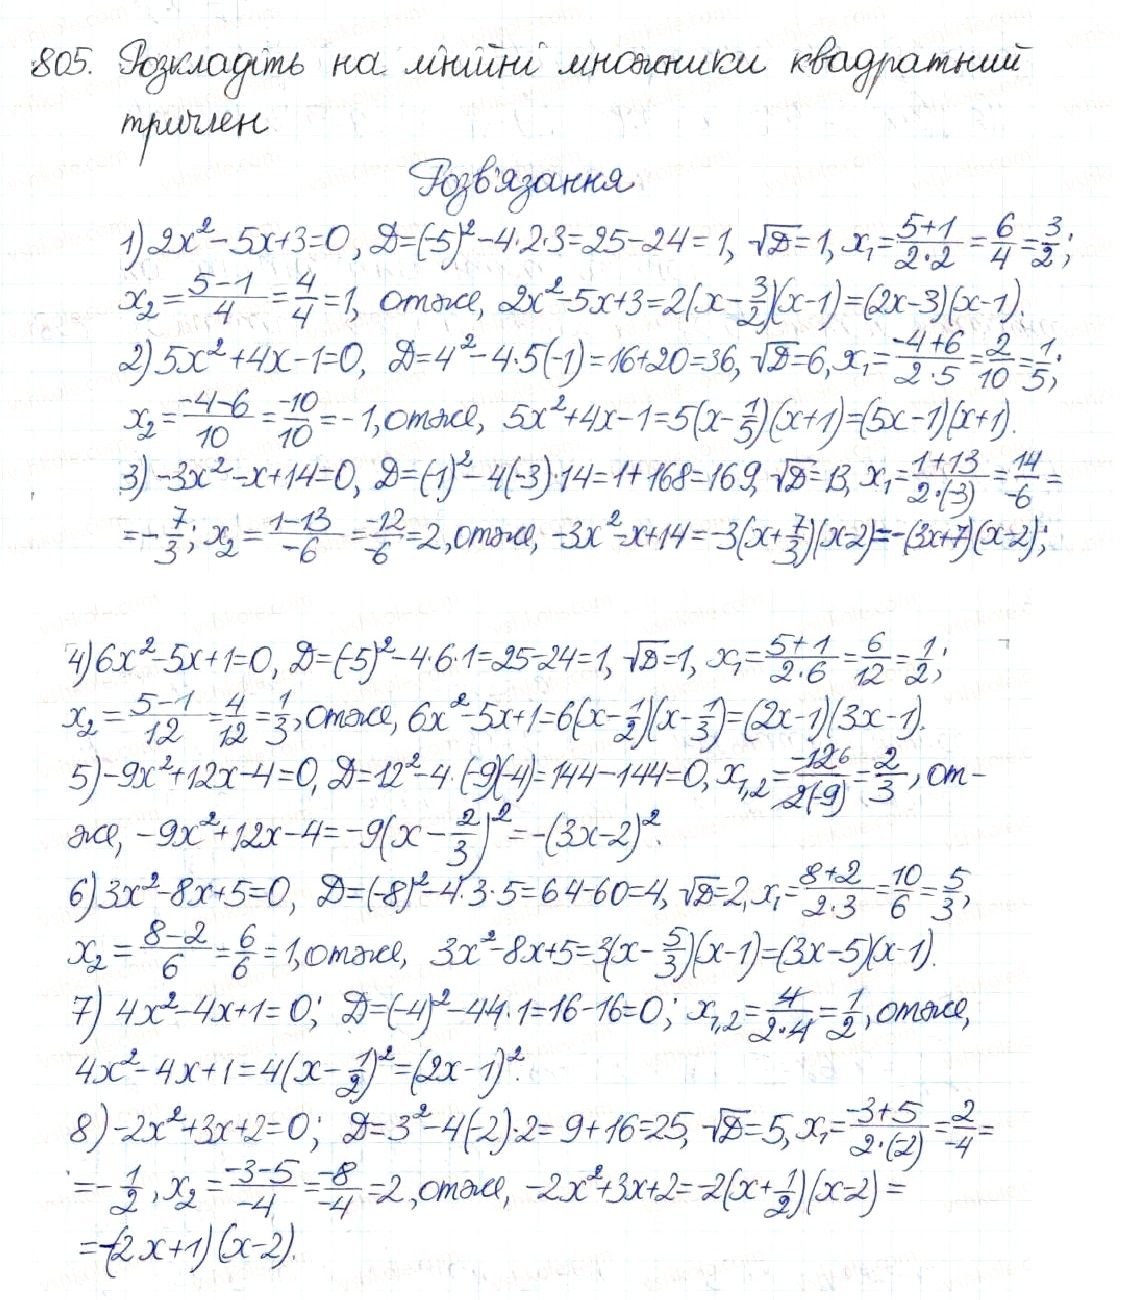 805. Розкладіть на лінійні множники квадратний
тричлен
Розв'язання
1) 2x²-5x+3=0, D=(-5)²-4·2·3=25-24=1, √D=1, x₁=(5+1)/(2·2)=6/4=3/2;
x₂=(5-1)/4=4/4=1, отже, 2x²-5x+3=2(x-3/2)(x-1)=(2x-3)(x-1).
2) 5x²+4x-1=0, D=4²-4·5(-1)=16+20=36, √D=6, x₁=(-4+6)/(2·5)=2/10=1/5;
x₂=(-4-6)/10=-10/10=-1, отже, 5x²+4x-1=5(x-1/5)(x+1)=(5x-1)(x+1).
3) -3x²-x+14=0, D=(-1)²-4(-3)·14=1+168=169, √D=13, x₁=(1+13)/(2·(-3))=14/-6=
=-7/3; x₂=(1-13)/-6=-12/-6=2, отже, -3x²-x+14=-3(x+7/3)(x-2)=-(3x+7)(x-2);
4) 6x²-5x+1=0, D=(-5)²-4·6·1=25-24=1, √D=1, x₁=(5+1)/(2·6)=6/12=1/2;
x₂=(5-1)/12=4/12=1/3, отже, 6x²-5x+1=6(x-1/2)(x-1/3)=(2x-1)(3x-1).
5) -9x²+12x-4=0, D=12²-4·(-9)(-4)=144-144=0, x₁,₂=-12⁶/2(-9)=2/3, от-
же, -9x²+12x-4=-9(x-2/3)²=-(3x-2)².
6) 3x²-8x+5=0, D=(-8)²-4·3·5=64-60=4, √D=2, x₁=(8+2)/(2·3)=10/6=5/3,
x₂=(8-2)/6=6/6=1, отже, 3x²-8x+5=3(x-5/3)(x-1)=(3x-5)(x-1).
7) 4x²-4x+1=0; D=(-4)²-44·1=16-16=0; x₁,₂=4/(2·4)=1/2, отже,
4x²-4x+1=4(x-1/2)²=(2x-1)².
8) -2x²+3x+2=0; D=3²-4(-2)·2=9+16=25, √D=5, x₁=(-3+5)/(2·(-2))=2/-4=
=-1/2, x₂=(-3-5)/-4=-8/-4=2, отже, -2x²+3x+2=-2(x+1/2)(x-2)=
=-(2x+1)(x-2).